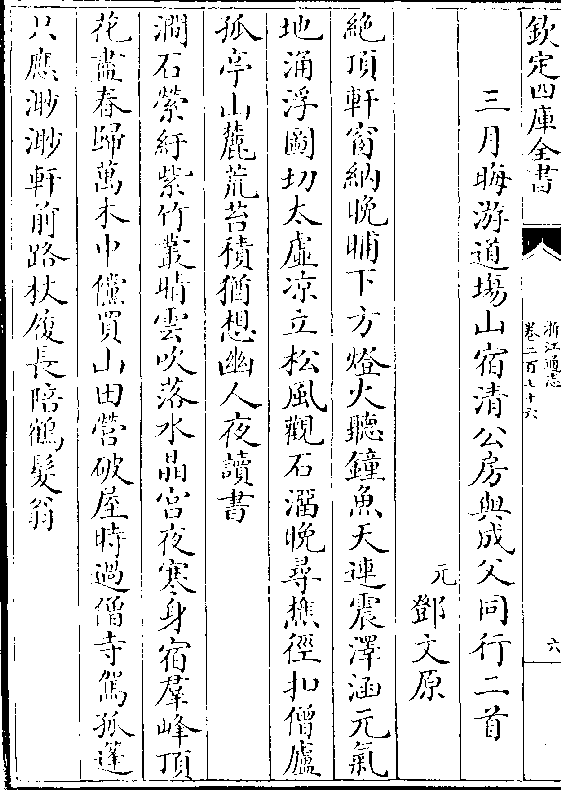 欽定四庫全書
浙江通志
卷二百七十六
六
三月晦游道場山宿清公房與成父同行二首
元
鄧文原
絶頂軒窗納晚晡下方燈火聽鐘魚天連震澤涵元氣
地涌浮圖切太虛凉立松風觀石溜晚尋樵徑扣僧廬
孤亭山麓荒苔積猶想幽人夜讀書
澗石縈紆紫竹叢晴雲吹落水晶宫夜寒身宿羣峰頂
花盡春歸萬木中儻買山田營破屋時過僧寺駕孤篷
只應渺渺軒前路杖屨長陪鶴髮翁